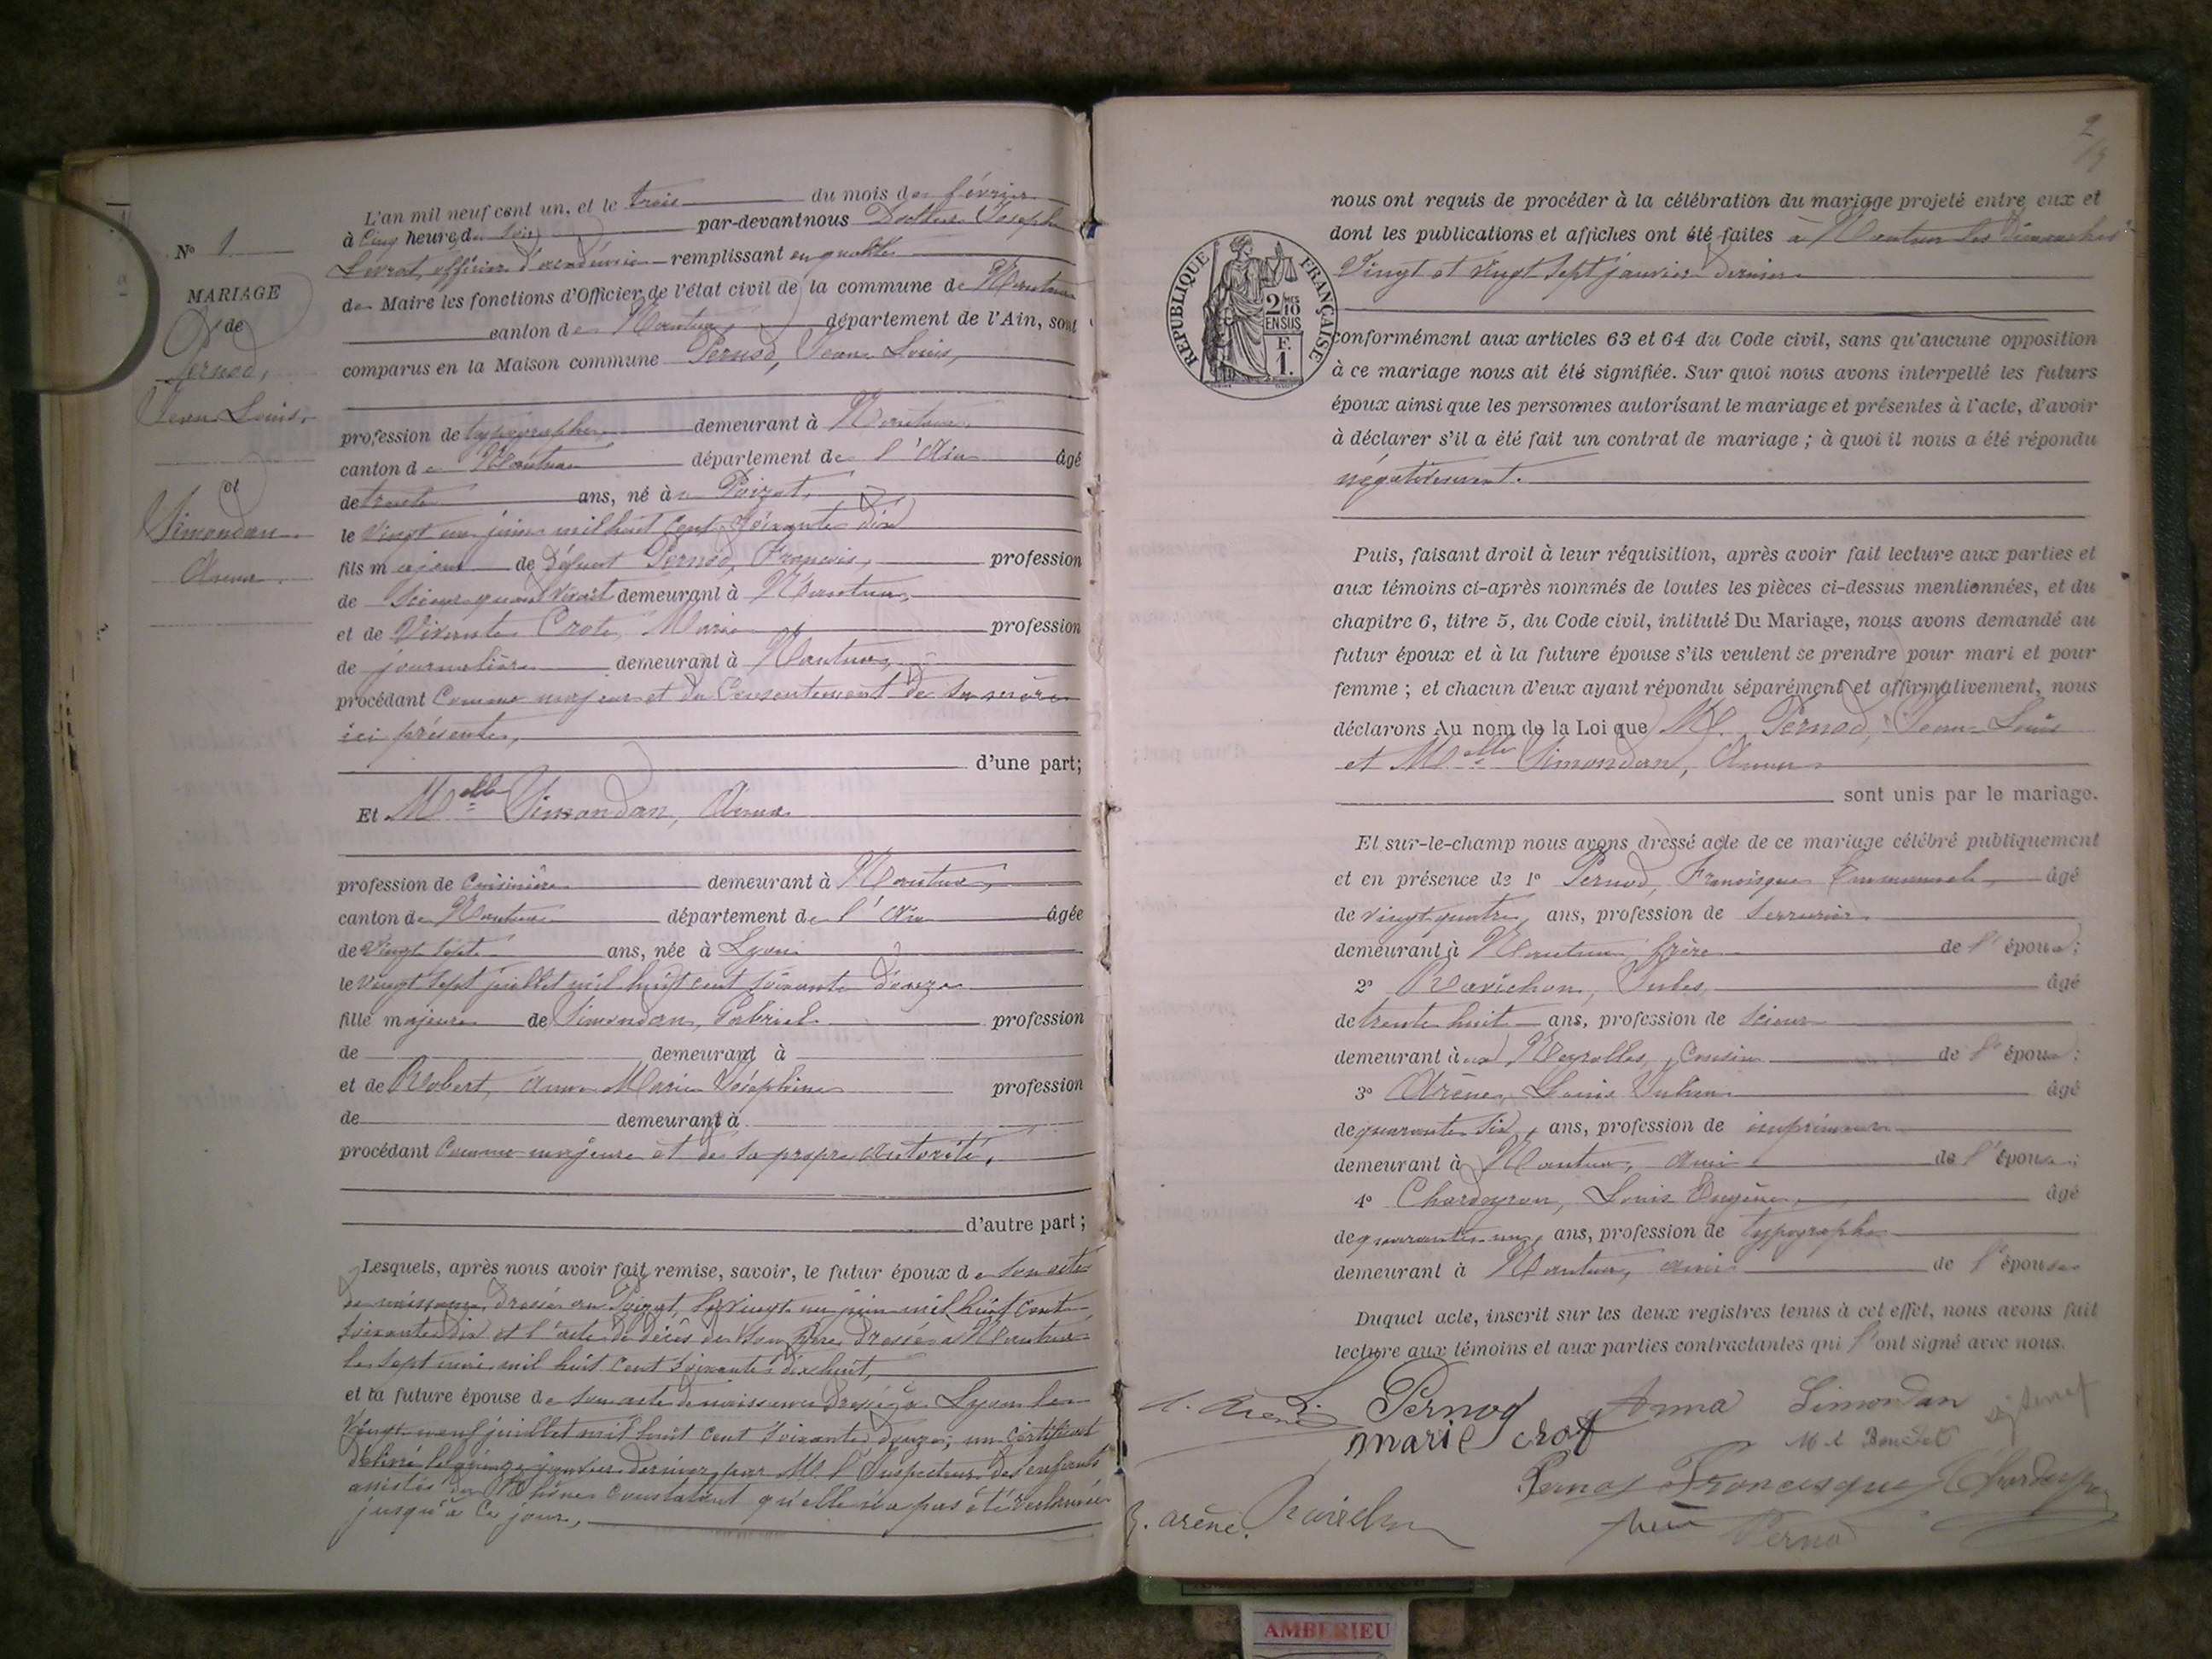 N° 1
MARIAGE
de
Pernod,
Jean Louis,
et
Simondan
Anna
L'an mil neuf cent un, et le trois du mois de février
à cinq heures du soir par-devant nous Docteur Joseph
officier d'académie remplissant en qualité
de Maire les fonctions d'Officier de l'état civil de la commune de Nantua
canton de Nantua département de l'Ain, sont
comparus en la Maison commune Pernod, Jean Louis,
profession de typographe demeurant à Nantua
canton de Nantua département de l'Ain âgé
de trente ans, né à Poizat,
le vingt un juin mil huit cent soixante dix
fils majeur de défunt Pernod, François, profession
de scieur quand vivait demeurant à Nantua,
et de vivante Crot, Marie profession
de journalière demeurant à Nantua,
procédant comme majeur et du consentement de sa mère
ici présente,
d'une part;
Et Melle Simondan, Anna
profession de cuisinière demeurant à Nantua,
canton de Nantua département de l'Ain âgée
de vingt sept ans, née à Lyon
le vingt sept juillet mil huit cent soixante douze
fille majeure de Simondan, Gabriel profession
de demeurant à
et de Robert, Anne Marie Joséphine profession
de demeurant à
procédant comme majeure et de sa propre autorité,
d'autre part;
Lesquels, après nous avoir fait remise, savoir, le futur époux de son acte
de naissance, dressé au Poizat, le vingt un juin mil huit cent
soixante dix et l'acte de décès de son père dressé à Nantua
le sept mai mil huit cent soixante dix huit,
et la future épouse de son acte de naissance dressé à Lyon le
vingt neuf juillet mil huit cent soixante douze; un certificat
délivré le quinze janvier dernier par Mr l'Inspecteur des enfants
assistés du Rhône constatant qu'elle n'a pas été réclamée
jusqu'à ce jour,
2
RÉPUBLIQUE FRANÇAISE
2/10
EN SUS
F.
1.
nous ont requis de procéder à la célébration du mariage projeté entre eux et
dont les publications et affiches ont été faites à Nantua les dimanches
vingt et vingt sept janvier dernier
conformément aux articles 63 et 64 du Code civil, sans qu'aucune opposition
à ce mariage nous ait été signifiée. Sur quoi nous avons interpellé les futurs
époux ainsi que les personnes autorisant le mariage et présentes à l'acte, d'avoir
à déclarer s'il a été fait un contrat de mariage; à quoi il nous a été répondu
négativement.
Puis, faisant droit à leur réquisition, après avoir fait lecture aux parties et
aux témoins ci-après nommés de toutes les pièces ci-dessus mentionnées, et du
chapitre 6, titre 5, du Code civil, intitulé Du Mariage, nous avons demandé au
futur époux et à la future épouse s'ils veulent se prendre pour mari et pour
femme; et chacun d'eux ayant répondu séparément et affirmativement, nous
déclarons Au nom de la Loi que M. Pernod, Jean-Louis
et Melle Simondan, Anna
sont unis par le mariage.
Et sur-le-champ nous avons dressé acte de ce mariage célébré publiquement
et en présence de 1° Pernod, Francisque Emmanuel âgé
de vingt quatre ans, profession de serrurier
demeurant à Nantua frère de l'époux;
2° Ravichon, Jules, âgé
de trente huit ans, profession de scieur
demeurant aux Neyrolles, cousin de l'époux;
3° Arène, Louis Julien âgé
de quarante six, ans, profession de imprimeur
demeurant à Nantua, ami de l'épouse;
4° Chardeyron, Louis Eugène, âgé
de quarante un, ans, profession de typographe
demeurant à Nantua, ami de l'épouse
Duquel acte, inscrit sur les deux registres tenus à cet effet, nous avons fait
lecture aux témoins et aux parties contractantes qui l'ont signé avec nous.
Arène L. Pernod Anna Simondan
marie crot
Pernod Francisque Chardeyron
E. arène. Ravichon Pernod
AMBERIEU